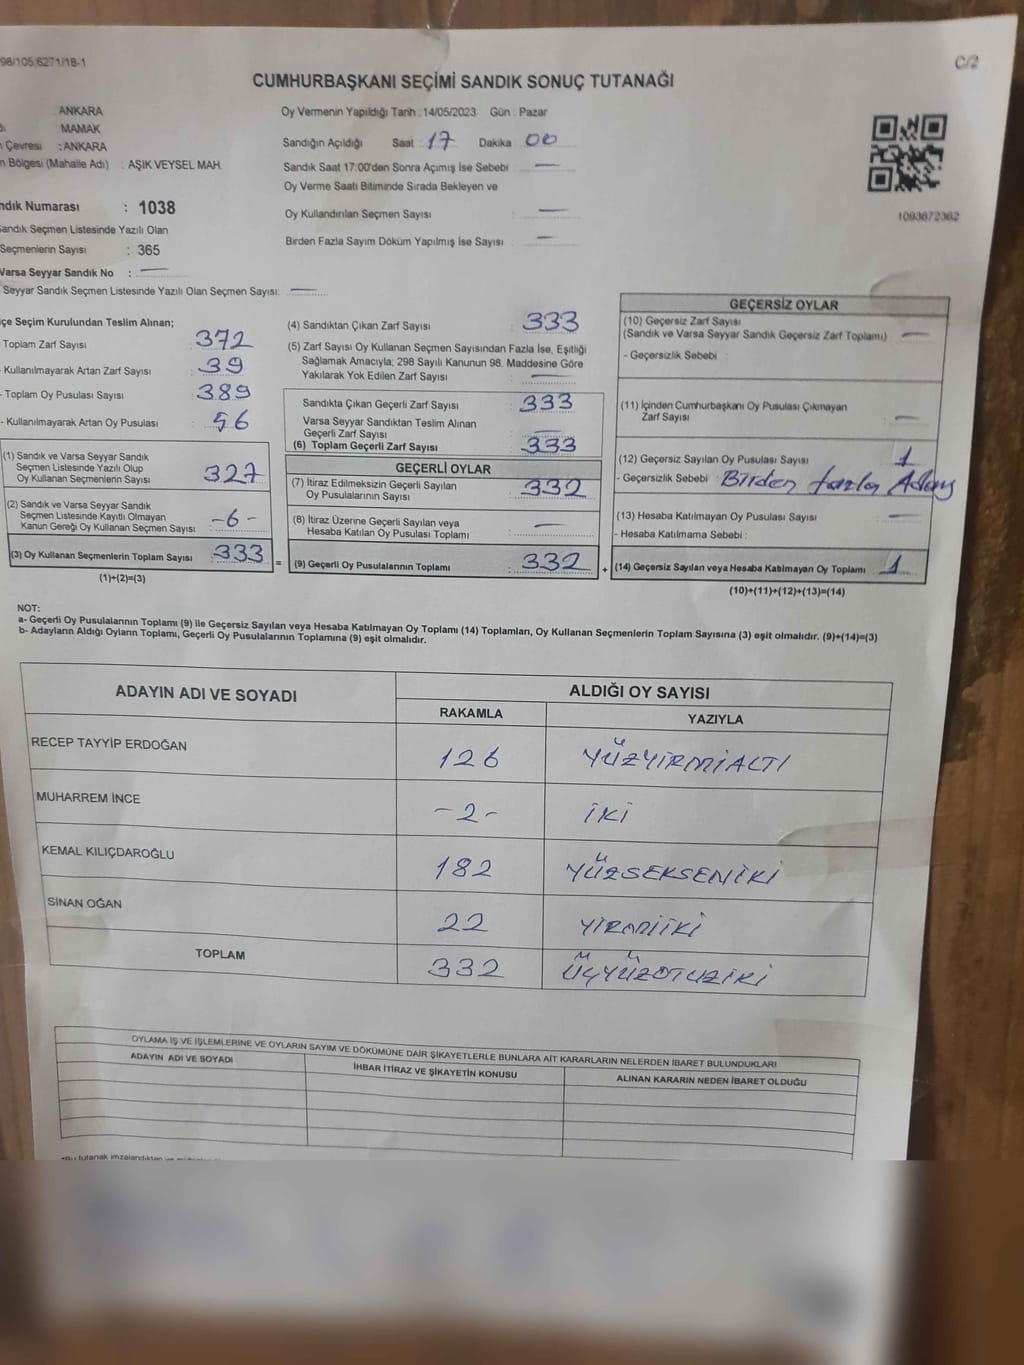 98/105.6271/18-1
C/2
CUMHURBAŞKANI SEÇİMİ SANDIK SONUÇ TUTANAĞI
ANKARA
MAMAK
Çevresi : ANKARA
Bölgesi (Mahalle Adı) : AŞIK VEYSEL MAH.
ndık Numarası : 1038
Sandık Seçmen Listesinde Yazılı Olan
Seçmenlerin Sayısı : 365
Varsa Seyyar Sandık No : —
Seyyar Sandık Seçmen Listesinde Yazılı Olan Seçmen Sayısı: —
Oy Vermenin Yapıldığı Tarih : 14/05/2023 Gün : Pazar
Sandığın Açıldığı Saat : 17 Dakika 00
Sandık Saat 17:00'den Sonra Açımış İse Sebebi —
Oy Verme Saati Bitiminde Sırada Bekleyen ve
Oy Kullandırılan Seçmen Sayısı : —
Birden Fazla Sayım Döküm Yapılmış İse Sayısı : —
1093672362
çe Seçim Kurulundan Teslim Alınan;
Toplam Zarf Sayısı : 372
- Kullanılmayarak Artan Zarf Sayısı : 39
- Toplam Oy Pusulası Sayısı : 389
- Kullanılmayarak Artan Oy Pusulası : 56
(1) Sandık ve Varsa Seyyar Sandık
Seçmen Listesinde Yazılı Olup
Oy Kullanan Seçmenlerin Sayısı : 327
(2) Sandık ve Varsa Seyyar Sandık
Seçmen Listesinde Kayıtlı Olmayan
Kanun Gereği Oy Kullanan Seçmen Sayısı : -6-
(3) Oy Kullanan Seçmenlerin Toplam Sayısı : 333
(1)+(2)=(3)
=
(4) Sandıktan Çıkan Zarf Sayısı : 333
(5) Zarf Sayısı Oy Kullanan Seçmen Sayısından Fazla İse, Eşitliği
Sağlamak Amacıyla; 298 Sayılı Kanunun 98. Maddesine Göre
Yakılarak Yok Edilen Zarf Sayısı : —
Sandıkta Çıkan Geçerli Zarf Sayısı : 333
Varsa Seyyar Sandıktan Teslim Alınan
Geçerli Zarf Sayısı : —
(6) Toplam Geçerli Zarf Sayısı : 333
GEÇERLİ OYLAR
(7) İtiraz Edilmeksizin Geçerli Sayılan
Oy Pusulalarının Sayısı : 332
(8) İtiraz Üzerine Geçerli Sayılan veya
Hesaba Katılan Oy Pusulası Toplamı : —
(9) Geçerli Oy Pusulalarının Toplamı : 332
+
GEÇERSİZ OYLAR
(10) Geçersiz Zarf Sayısı
(Sandık ve Varsa Seyyar Sandık Geçersiz Zarf Toplamı) : —
- Geçersizlik Sebebi :
(11) İçinden Cumhurbaşkanı Oy Pusulası Çıkmayan
Zarf Sayısı : —
(12) Geçersiz Sayılan Oy Pusulası Sayısı : 1
- Geçersizlik Sebebi : Birden fazla Aday
(13) Hesaba Katılmayan Oy Pusulası Sayısı : —
- Hesaba Katılmama Sebebi :
(14) Geçersiz Sayılan veya Hesaba Katılmayan Oy Toplamı : 1
(10)+(11)+(12)+(13)=(14)
NOT:
a- Geçerli Oy Pusulalarının Toplamı (9) ile Geçersiz Sayılan veya Hesaba Katılmayan Oy Toplamı (14) Toplamları, Oy Kullanan Seçmenlerin Toplam Sayısına (3) eşit olmalıdır. (9)+(14)=(3)
b- Adayların Aldığı Oyların Toplamı, Geçerli Oy Pusulalarının Toplamına (9) eşit olmalıdır.
ADAYIN ADI VE SOYADI ALDIĞI OY SAYISI
RAKAMLA YAZIYLA
RECEP TAYYİP ERDOĞAN 126 YÜZYİRMİALTI
MUHARREM İNCE -2- İKİ
KEMAL KILIÇDAROĞLU 182 YÜZSEKSENİKİ
SİNAN OĞAN 22 YİRMİİKİ
TOPLAM 332 ÜÇYÜZOTUZİKİ
OYLAMA İŞ VE İŞLEMLERİNE VE OYLARIN SAYIM VE DÖKÜMÜNE DAİR ŞİKAYETLERLE BUNLARA AİT KARARLARIN NELERDEN İBARET BULUNDUKLARI
ADAYIN ADI VE SOYADI İHBAR İTİRAZ VE ŞİKAYETİN KONUSU ALINAN KARARIN NEDEN İBARET OLDUĞU
*Bu tutanak imzalandıktan